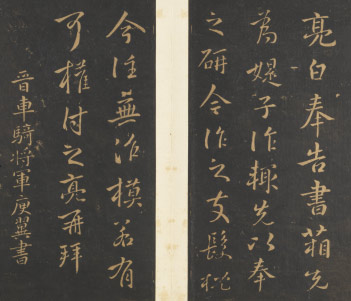 亮白奉告書箱先
為媞子作輒先以奉
之研令作之支髮
今往無作模若有
可權付之亮再拜
晉車騎將軍庾翼書